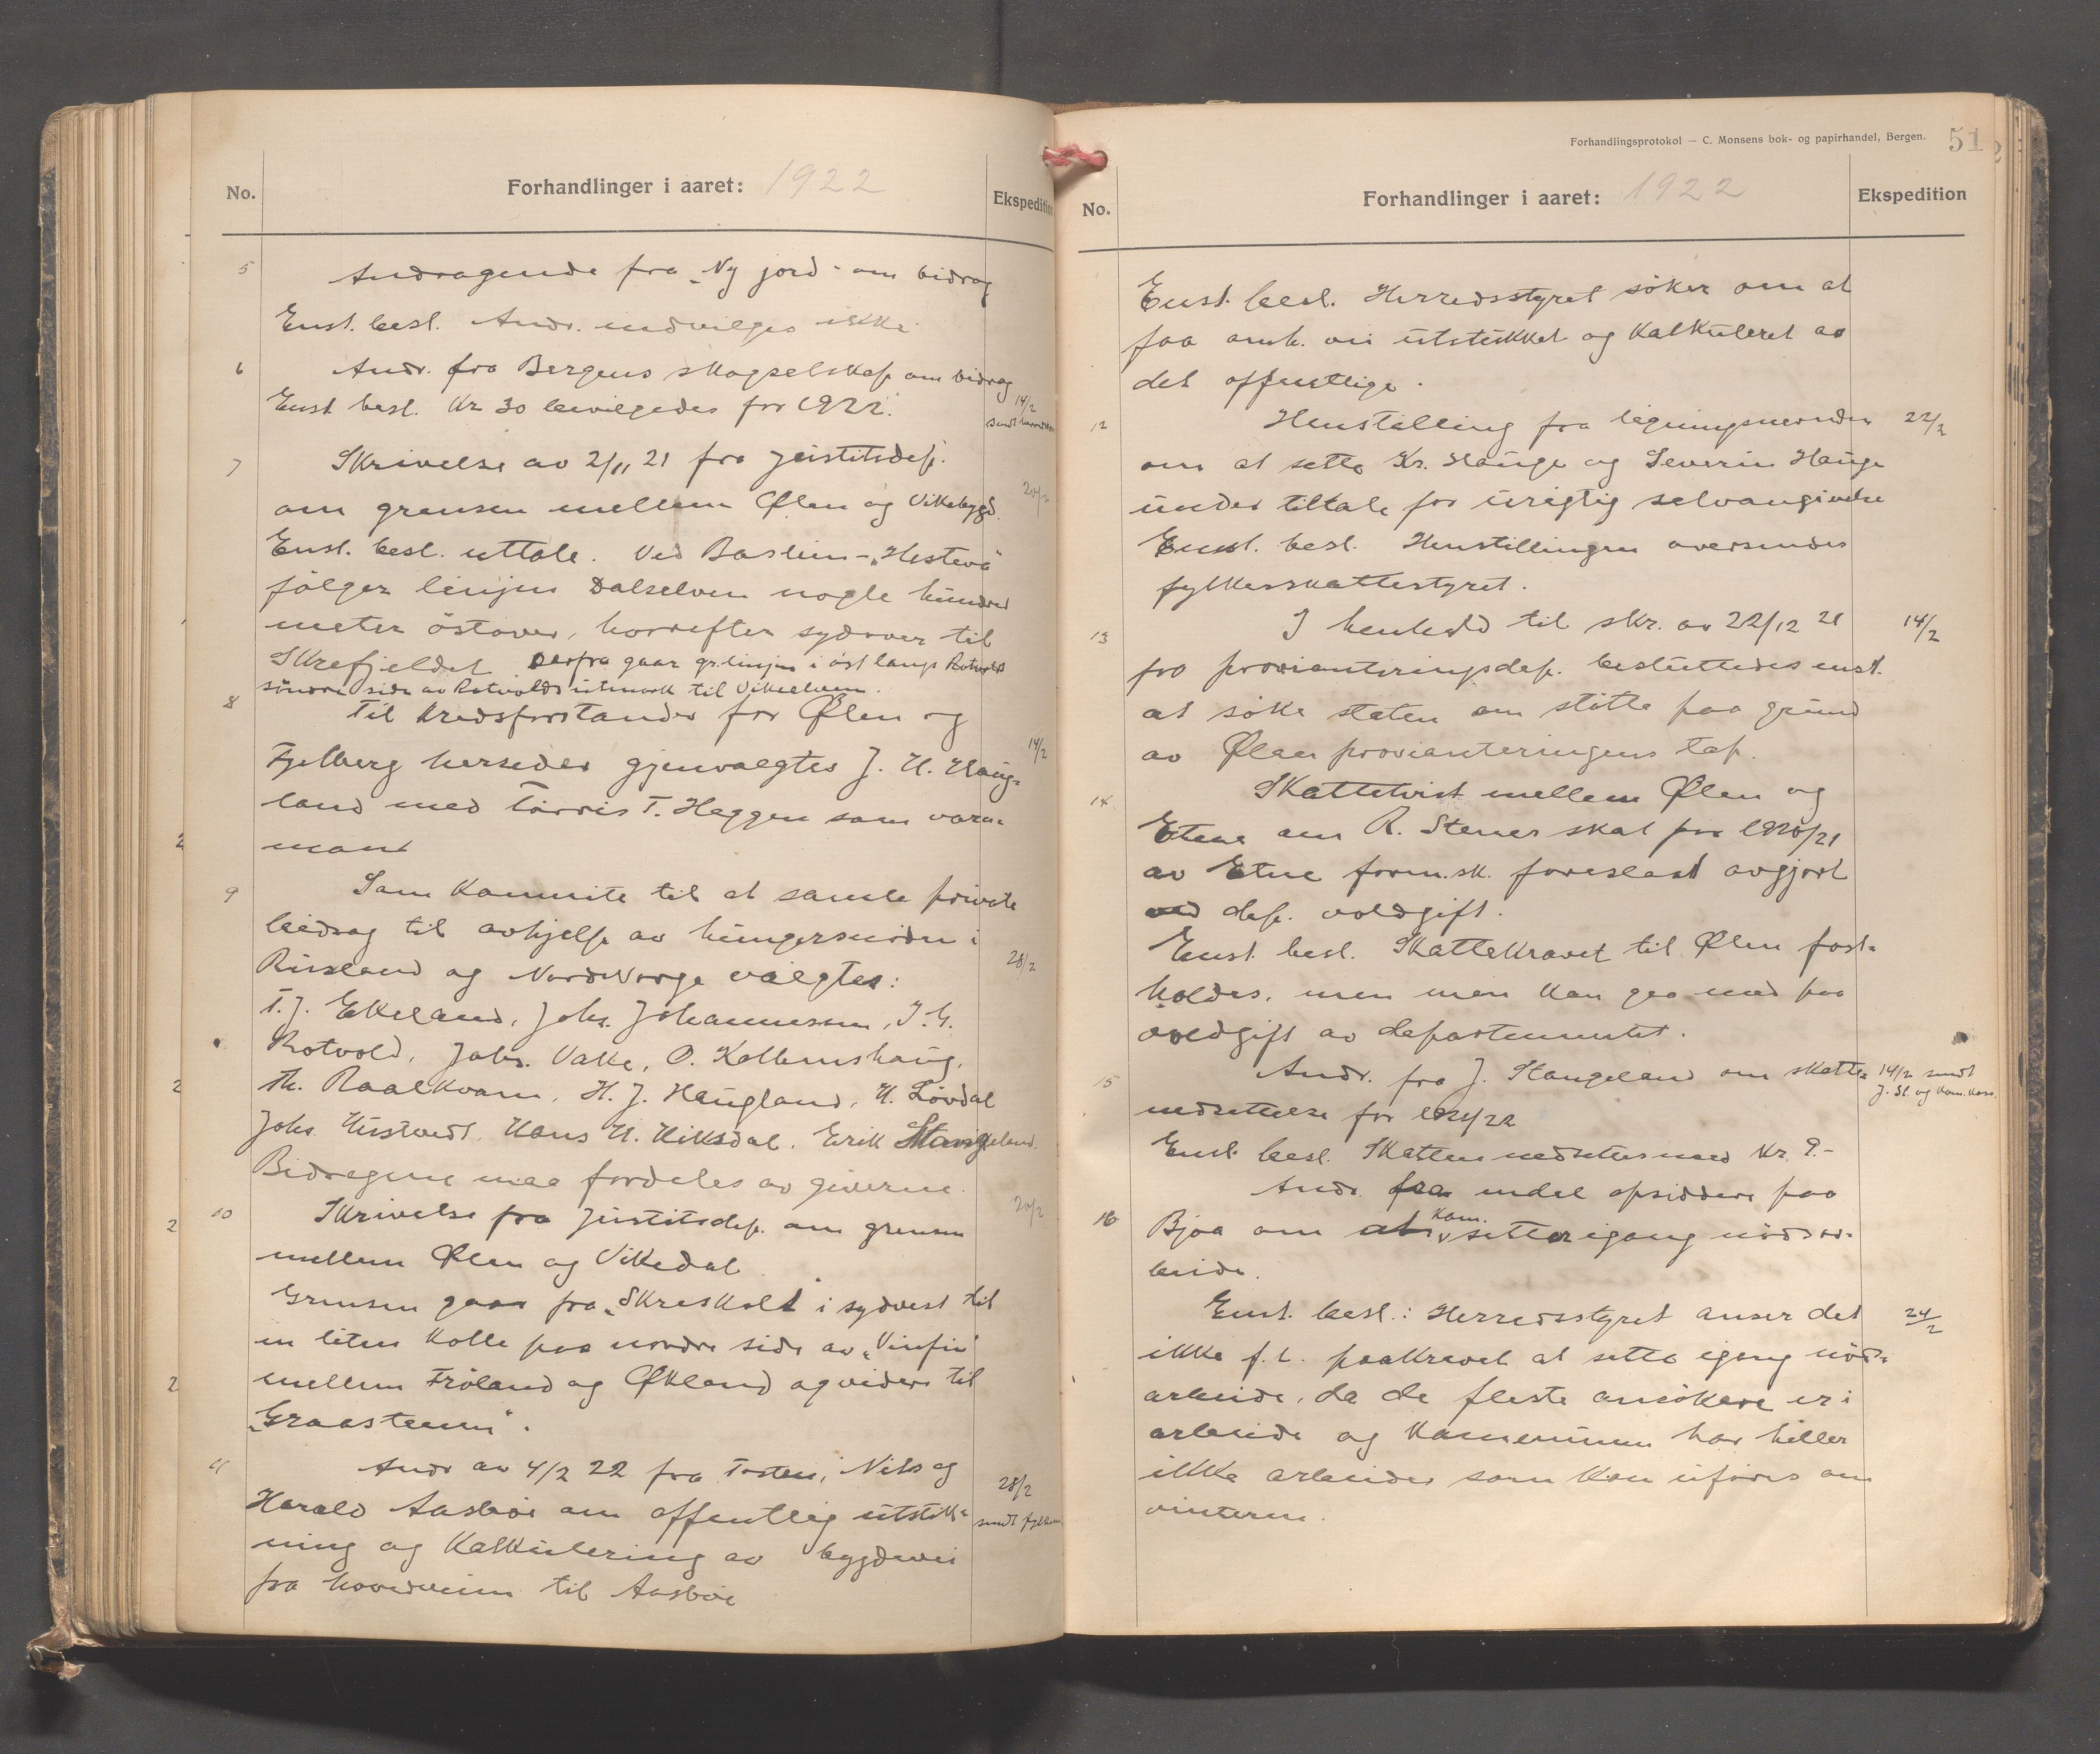 No.
Forhandlinger i aaret: 1922
Ekspedition
5
Andragende fra „Ny jord" om bidrag
Enst. besl. Andr. indvilges ikke
6
Andr. fra Bergens skogselskap om bidrag
Enst. besl. Kr 30 bevilgedes for 1922.
14/2
sendt
7
Skrivelse av 2/11 21 fra justitsdep.
20/2
om grensen mellem Ølen og Vikebygd.
Enst. besl. uttale. Ved
følger linjen Dalselven nogle hundred
meter østover, horefter sydover til
Skrefjeldet Derfra gaar gr.linjen i øst langs Rotvolds
søndre side av Rotvolds utmark til Vikeelven.
8
Til kredsforstander for Ølen og
14/2
Fjelberg herseder gjenvalgtes J. H. Haug-
land med Tørris T. Heggen som vara-
mand
9
Som komite til at samle private
bidrag til avhjelp av hungersnøden i
28/2
Rusland og NordNorge valgtes:
T. J. Ekeland, Johs. Johannessen, I. G.
Rotvold, Johs. Vakke, O. Kallemshaug,
Th. Raalkvam, H. J. Haugland, H. Løvdal
Johs. Hustvedt, Hans H. Kiksdal, Erik Stangeland.
Bidragene maa fordeles av giverne.
10
Skrivelse fra justitsdep. om grensen
20/2
mellem Ølen og Vikedal
Grensen gaar fra „Skreskolt i sydvest til
en liten kolle paa nordre side av „Vinfin"
mellem Frøland og Økland og videre til
„Graasteinen".
11
Andr av 4/2 22 fra Tosten, Nils og
28/2
Harald Aasbøe om offentlig utstik-
sendt fylkesm
ning og kalkulering av bygdevei
fra hovedveien til Aasbøe
Forhandlingsprotokol — C. Monsens bok- og papirhandel, Bergen.
51
No.
Forhandlinger i aaret: 1922
Ekspedition
Enst. besl. Herredsstyret søker om at
faa omh. vei utstukket og kalkuleret av
det offentlige.
12
Henstilling fra ligningsnevnden
22/2
om at sette Kr. Hauge og Severin Hauge
under tiltale for urigtig selvangivelse
Enst. besl. Henstillingen oversendes
fylkesskattestyret.
13
I henhold til skr. av 22/12 21
14/2
fra provianteringsdep. besluttedes enst.
at søke staten om støtte paa grund
av Ølen provianteringens tap.
14
Skattetvist mellem Ølen og
Etne om R. Stenes skat for 1920/21
av Etne form.sk. foreslaat avgjort
ved dep. voldgift.
Enst. besl. Skattekravet til Ølen fast-
holdes, men men kan gaa med paa
voldgift av departementet.
15
Andr. fra J. Stangeland om skatte-
14/2 sendt
J. St. og Kom.kass.
nedsettelse for 1921/22
Enst. besl. Skatten nedsettes med Kr. 9.-
16
Andr. fra endel opsiddere paa
Bjoa om at kom. setter igang nødsar-
beide.
Enst. besl.: Herredsstyret anser det
24/2
ikke f. t. paakrævet at sette igang nød-
arbeide, da de fleste ansøkere er i
arbeide og kommunen har heller
ikke arbeider som kan uføres om
vinteren.